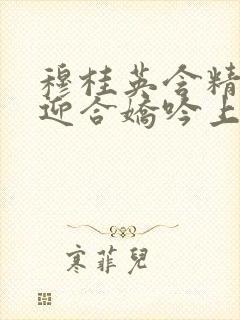 穆桂英含精
迎合嬌吟上
寒菲兒